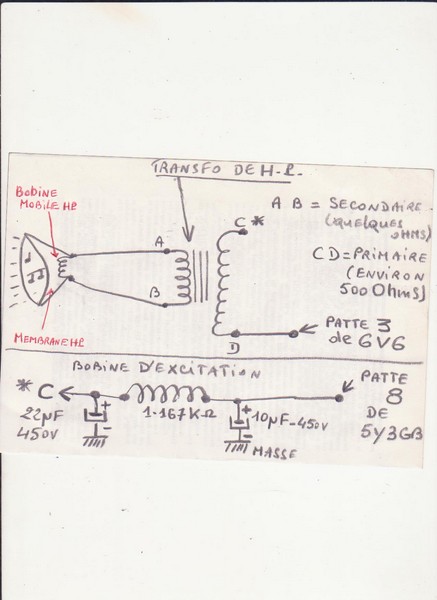 TRANSFO DE H-P.
BOBINE
MOBILE HP
A B = SECONDAIRE.
(QUELQUES
OHMS)
C *
A
CD=PRIMAIRE
(ENVIRON
500 Ohms)
B
MEMBRANE HP
D
PATTE 3
de 6V6
BOBINE D'EXCITATION
* C
22µF
450V
+
-
1-167KΩ
+
-
10µF-450V
MASSE
PATTE
8
DE
5Y3GB